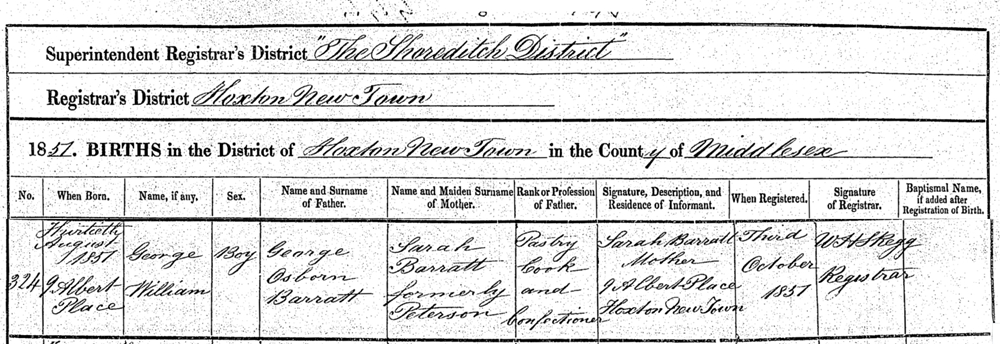 Superintendent Registrar's District "The Shoreditch District"
Registrar's District Hoxton New Town
1851. BIRTHS in the District of Hoxton New Town in the County of Middlesex
No. When Born. Name, if any. Sex. Name and Surname of Father. Name and Maiden Surname of Mother. Rank or Profession of Father. Signature, Description, and Residence of Informant. When Registered. Signature of Registrar. Baptismal Name, if added after Registration of Birth.
324
Thirtieth
August
1851
9 Albert
Place
George
William
Boy
George
Osborn
Barratt
Sarah
Barratt
formerly
Peterson
Pastry
Cook
and
Confectioner
Sarah Barratt
Mother
9 Albert Place
Hoxton New Town
Third
October
1851
W H Skegg
Registrar